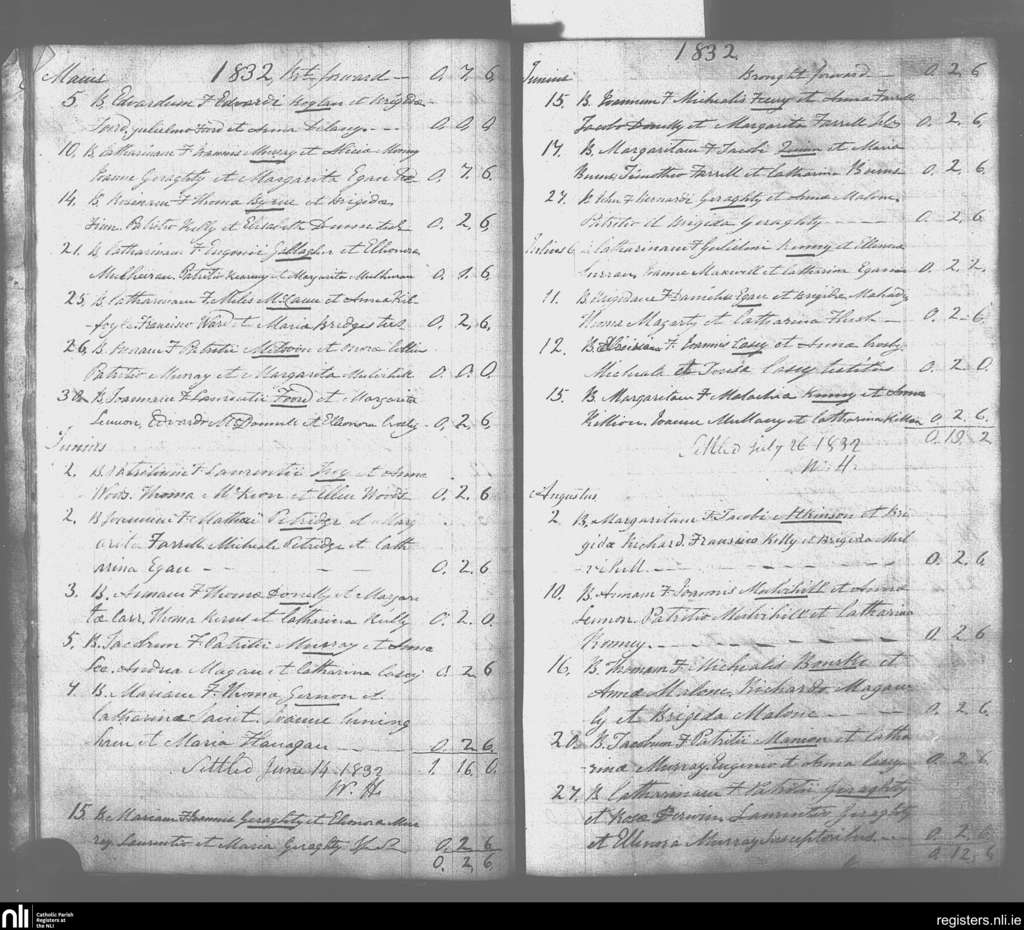 1832
Maius Bt. forward - 0. 7. 6
5. B. Edvardum F. Edvardi Boylan et Brigida
Ford, Gulielmo Ford et Anna Delany 0. 0. 0
10. B. Catharinam F. Joannis Murray et Alicia
Joanne Geraghty et Margarita Egan 0. 7. 6
14. B. Rosanam F. Thoma Byrne et Brigida
Finn. Patritio Kelly et Elisabeth 0. 2. 6
21. B. Catharinam F. Eugenii Gallagher et Elleonora
Mulheiran. Patritio Kearney et Margarita Mulheiran 0. 2. 6
25. B. Catharinam F. Miles McCann et Anna Kil-
foyle. Francisco Ward et Maria Bridget 0. 2. 6.
26. B. F. Patritii et
Patritio Murray et Margarita Mulvihill 0. 0. 0.
B. Joannem F. Laurentii Ford et Margarita
Lennon, Edvardo McDonnell et Elleonora 0. 2. 6
Junius
2. B. F. Laurentii et Anna
Woods. Thoma McKeon et Ellen Woods 0. 2. 6
2. B. Joannem F. Mathaei Petridge et Marg
arita Farrell. Micheale Petridge et Cath
arina Egan - - - 0. 2. 6
3. B. Annam F. Thoma Donelly et Margari
ta Carr. Thoma Kerns et Catharina Kielly 0. 2. 0.
5. B. Jacobum F. Patritii Murray et Anna
Lee. Andrea Magan et Catharina Casey 0. 2. 6
7. B. Mariam F. Thoma Gernon et
Catharina Saint. Joanne Cuning
ham et Maria Flanagan 0. 2. 6.
Settled June 14. 1832 1. 16. 0.
W. H.
15. B. Mariam F. Joannis Geraghty et Elenora Mur
ray Laurentio et Maria Geraghty 0. 2. 6
0. 2. 6
1832
Junius Brought forward 0. 2. 6
15. B. Joannem F. Michealis Fury et Anna Farrell
Jacobo Donelly et Margarita Farrell 0. 2. 6
17. B. Margaritam F. Jacobi Quinn et Maria
Burns. Timotheo Farrell et Catharina Burns 0. 2. 6
27. B. F. Bernardi Geraghty et Anna Malone
Patritio et Brigida Geraghty 0. 2. 6.
Julius 6. B. Catharinam F. Gulielmi Kenny et Ellenora
Curran, Joanne Maxwell et Catharina Egan 0. 2. 2.
11. B. Brigidam F. Danielis Egan et Brigida
Thoma et Catharina 0. 2. 6.
12. B. F. Joannis Casey et Anna
Micheale et Casey 0. 2. 0
15. B. Margaritam F. Malachia Kenny et Anna
Killion. Joanne Mullany et Catharina Killion 0. 2. 6.
0. 19. 2
Settled July 26 1832
W. H.
Augustus
2 B. Margaritam F. Jacobi Atkinson et Bri
gida Richard. Francisco Kelly et Brigida Mul
vihill 0. 2. 6
10. B. Annam F. Joannis Mulvihill et Anna
Lennon. Patritio Mulvihill et Catharina
Kenney 0. 2. 6
16. B. Thomam F. Michealis Bourke et
Anna Malone, Richardo Magaw
ly et Brigida Malone 0. 2. 6.
20. B. Jacobum F. Patritii Mannon et Catha
rina Murray. Eugenio et Anna Casey 0. 2. 6
27. B. Catharinam F. Patritii Geraghty
et Rosa Laurentio Geraghty
et Ellenora Murray Susceptoribus 0. 2. 6
0. 12. 6
nli
Catholic Parish
Registers at
the NLI
registers.nli.ie